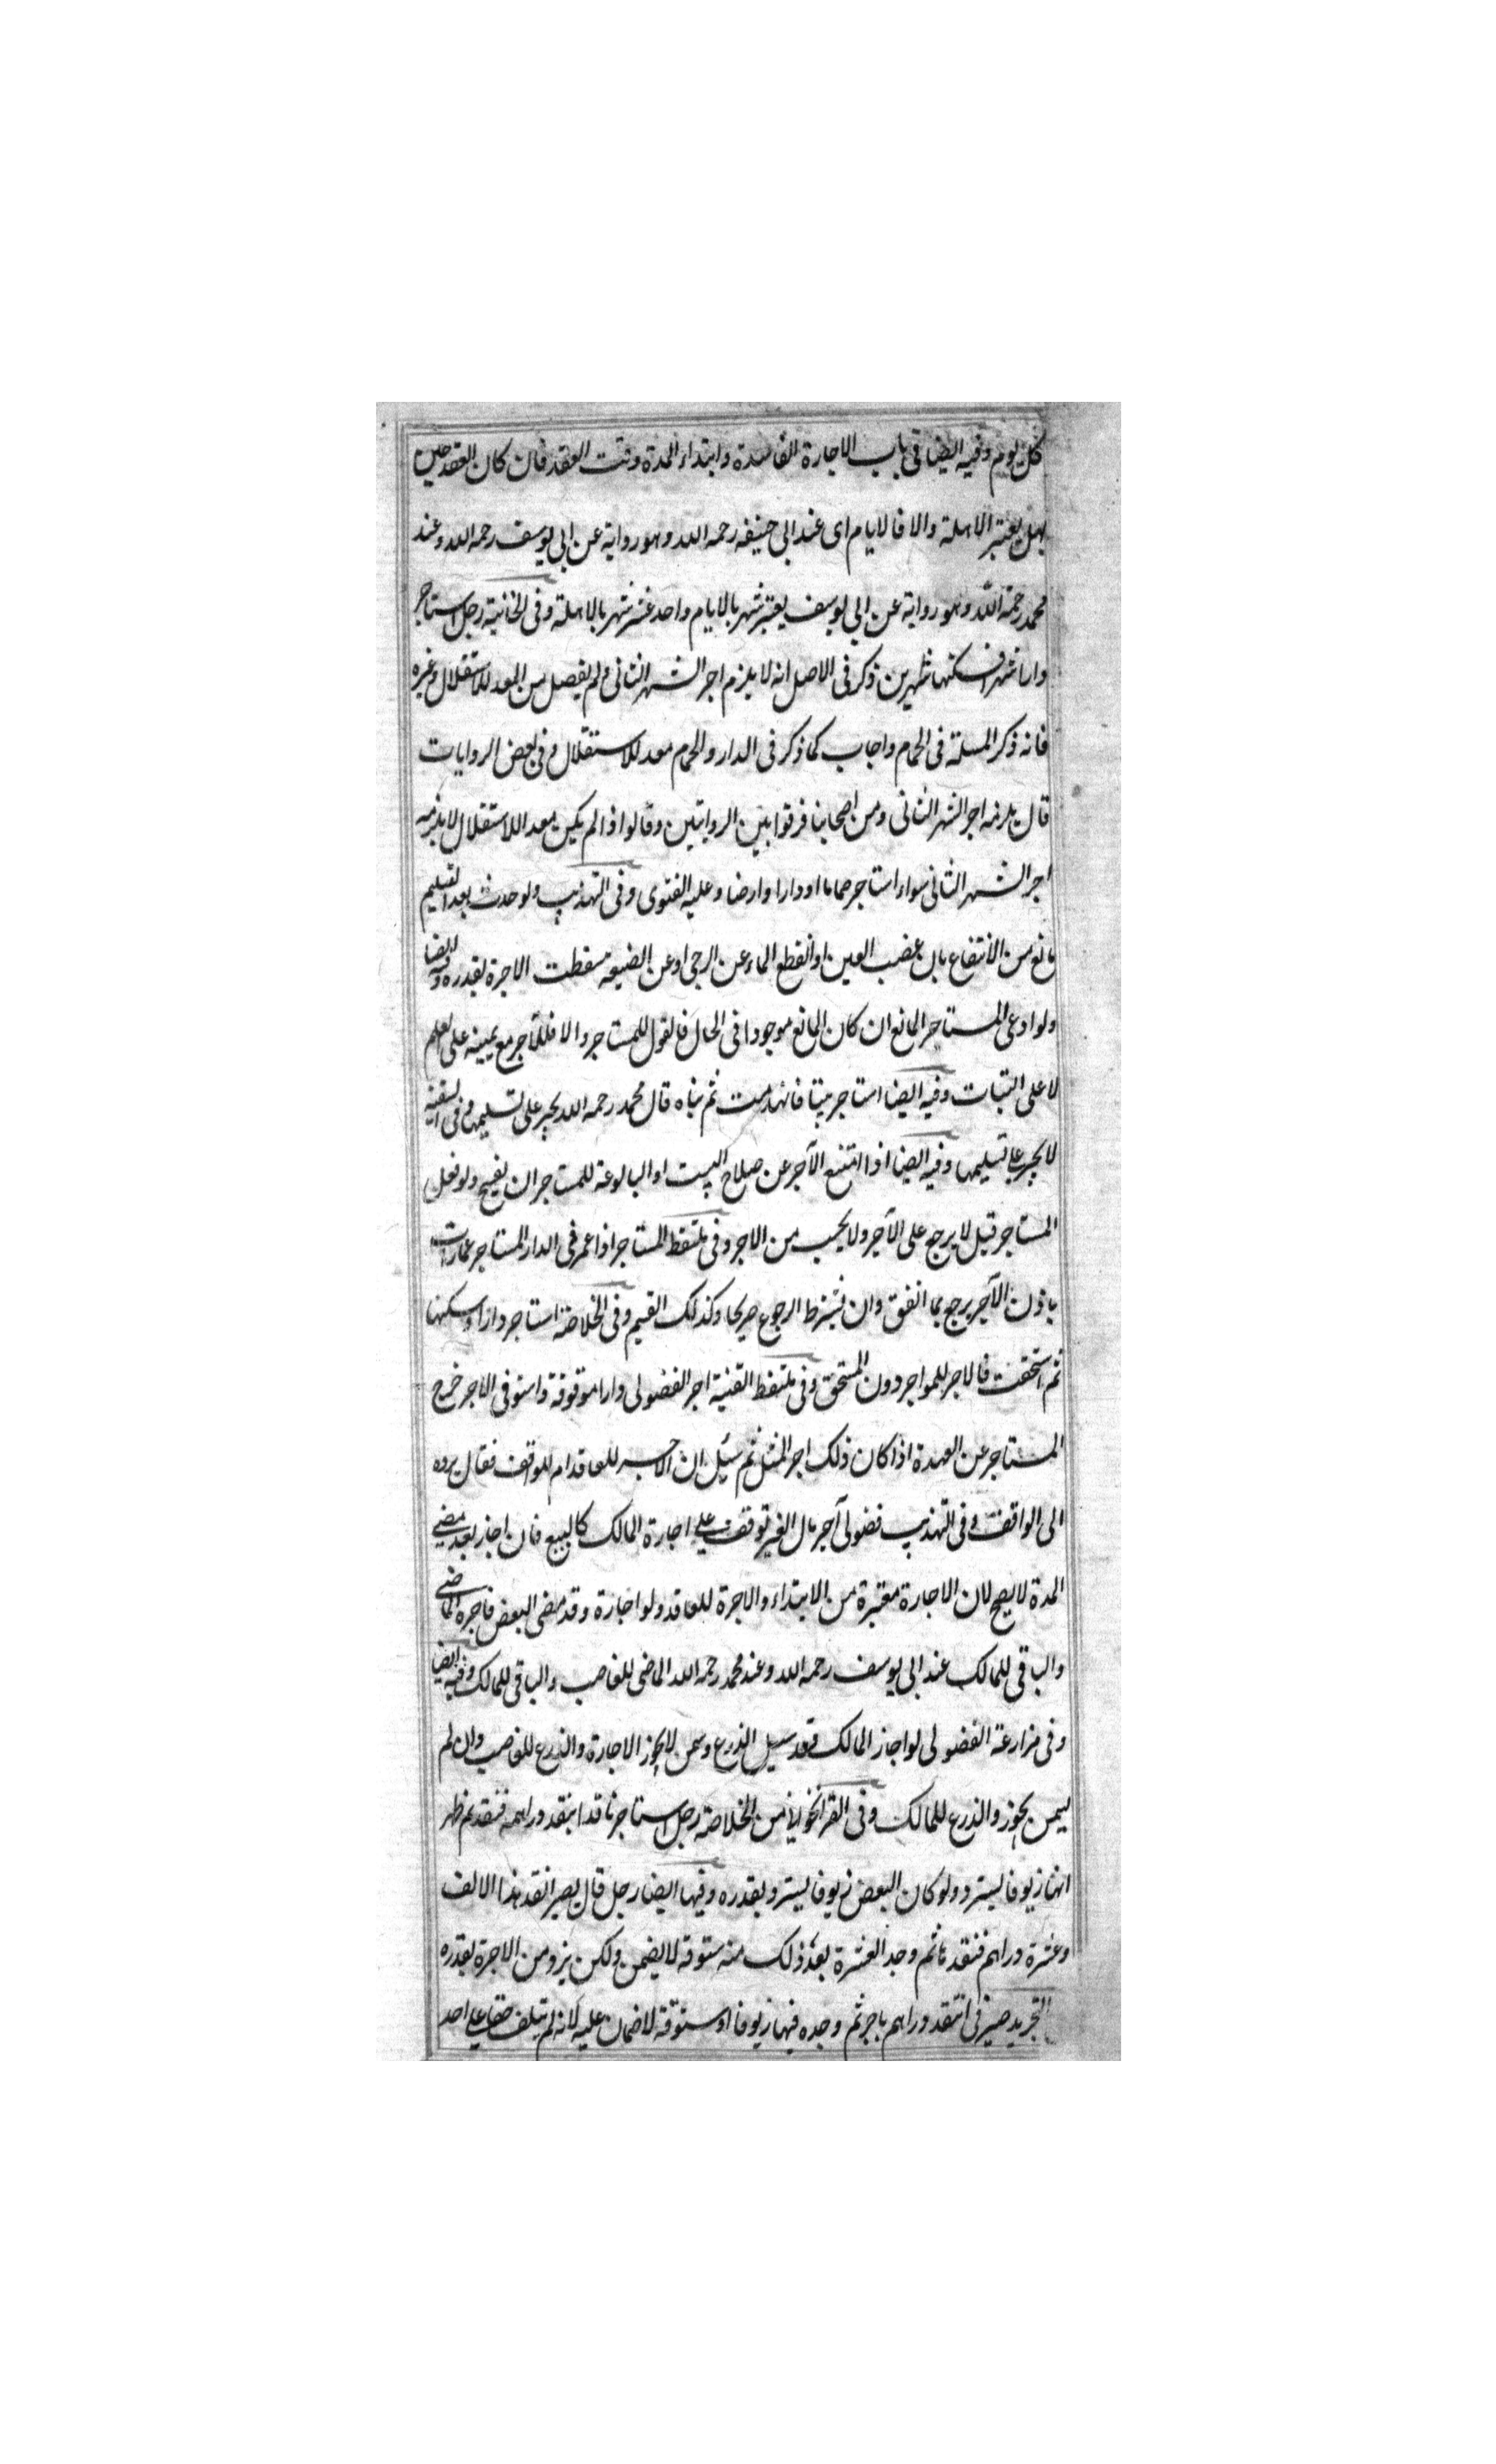 كل يوم وفيه ايضا فى باب الاجارة الفاسدة وابتداء المدة وقت العقد فان كان العقد حين
يهل يعتبر الاهلة والا فالايام اى عند ابى حنيفه رحمه الله وهو رواية عن ابى يوسف رحمه الله وعند
محمد رحمة الله وهو رواية عن ابى يوسف يعتبر شهر بالايام واحد عشر شهر بالاهلة وفى الخانية رجل استاجر
دارا شهرا فسكنها شهرين ذكر فى الاصل انه لا يلزم اجر الشهر الثانى ولم يفصل بين المعد للاستقلال وغيره
فانه ذكر المسئلة فى الحمام واجاب كما ذكر فى الدار والحمام معد للاستقلال وفى بعض الروايات
قال يلزمه اجر الشهر الثانى ومن اصحابنا فرقوا بين الروايتين وقالوا اذا لم يكن معد اللاستقلال لا يلزمه
اجر الشهر الثانى سواء استاجر حماما او دارا وارضا وعليه الفتوى وفى التهذيب ولو حدث بعد التسليم
مانع من الانتفاع بان غصب العين او انقطع الماء عن الرحى او عن الضيعة سقطت الاجرة بقدره وفيه ايضا
ولو ادعى المستاجر المانع ان كان المانع موجودا فى الحال فالقول للمستاجر والا فللآجر مع يمينه على العلم
لا على البتات وفيه ايضا استاجر بيتا فانهدمت ثم بناه قال محمد رحمه الله يجبر على تسليمها وفى السفينة
لا يجبر على تسليمها وفيه ايضا اذا امتنع الآجر عن صلاح البيت او البالوعة للمستاجر ان يفسخ ولو فعل
المستاجر قيل لا يرجع على الآجر ولا يحسب من الاجر وفى ملتقط المستاجر اذا عمر فى الدار المستاجر عمارات
باذن الآجر يرجع بما انفق وان يشترط الرجوع صريحا وكذلك القيم وفى الخلاصة استاجر دارا وسكنها
ثم استحقت فالاجر للمواجر دون المستحق وفى ملتقط القنية اجر الفضولى دارا موقوفة واستوفى الاجر خرج
المستاجر عن العهدة اذا كان ذلك اجر المثل ثم سئل ان الاجر للعاقد ام للواقف فقال يرده
الى الواقف وفى التهذيب فضولى آجر مال الغير توقف على اجارة المالك كالبيع فان اجاز بعد مضى
المدة لا يصح لان الاجارة معتبرة من الابتداء والاجرة للعاقد ولو اجازة وقد مضى البعض فاجرة الماضى
والباقى للمالك عند ابى يوسف رحمه الله وعند محمد رحمه الله الماضى للغاصب والباقى للمالك وفيه ايضا
وفى مزارعة الفضولى لو اجاز المالك وقد سنبل الذرع وسمن لا يجوز الاجارة والذرع للغاصب وان لم
يسمن يجوز والذرع للمالك وفى القراخوانى من الخلاصة رجل استاجر ناقدا ينقد دراهمه فنقد ثم ظهر
انها زيوفا يسترد ولو كان البعض زيوفا يسترد بقدره وفيها ايضا رجل قال لصير انقد هذا الالف
وعشرة دراهم فنقد ثم وجد العشرة بعد ذلك منه ستوقة لا يضمن ولكن يرد من الاجرة بقدره
التجريد صيرفى انتقد دراهم باجر ثم وجده فيها زيوفا او ستوقة لا ضمان عليه لانه لم يتلف حقا على احد